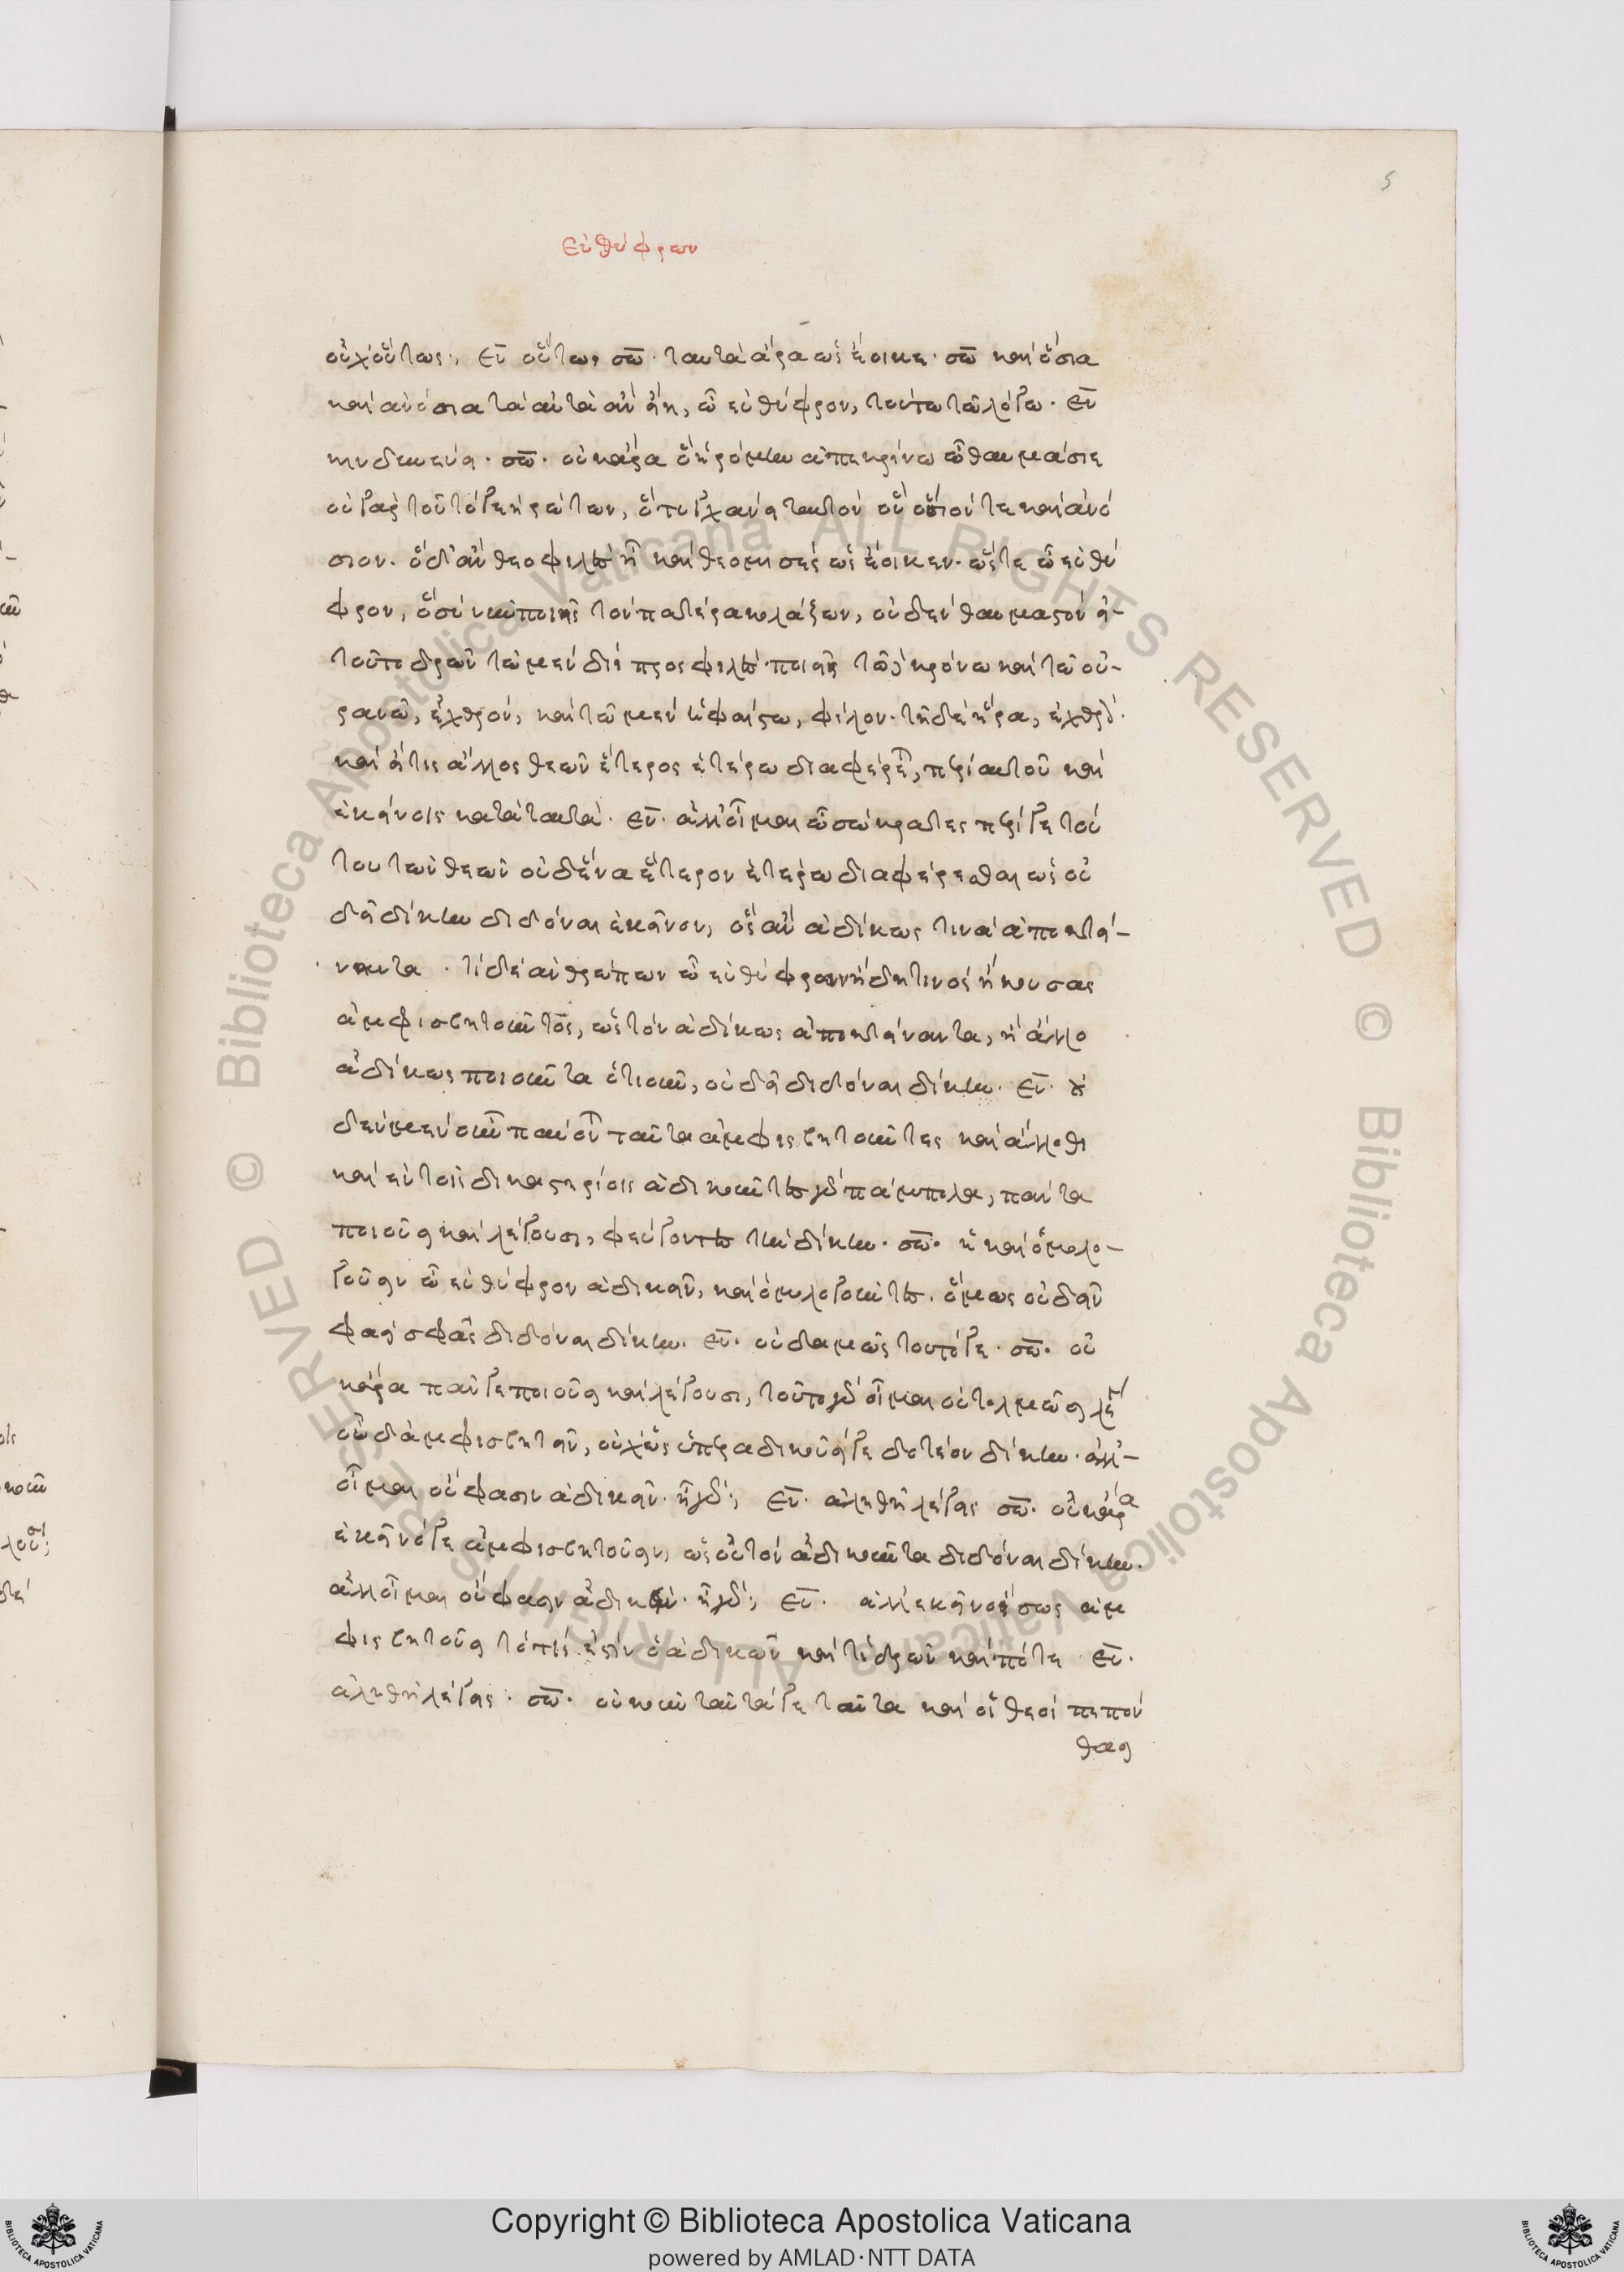 5
Εὐθύφρων
οὐχ οὕτως; ευ οὕτω. σω. ταυτὰ ἄρα ὡς ἔοικε. σω καὶ ὅσια
καὶ ἀνόσια τὰ αὐτὰ ἂν εἴη, ὦ εὐθύφρον, τούτω τῶ λόγω. ευ
κινδυνεύει. σω. οὐκ ἄρα ὃ ἠρόμην ἀπεκρίνω ὦ θαυμάσιε
οὐ γὰρ τοῦτό γε ἠρώτων, ὃ τυγχάνει ταυτὸν ὂν ὅσιόν τε καὶ ἀνό
σιον. ὃ δ' ἂν θεοφιλὲς ἦ καὶ θεομισές ὡς ἔοικεν. ὥστε ὦ εὐθύ
φρον, ὃ σὺ νῦν ποιεῖς τὸν πατέρα κολάζων, οὐδὲν θαυμαστὸν εἰ
τοῦτο δρῶν τῶ μὲν διὶ προσφιλὲς ποιεῖς τῶ δὲ κρόνω καὶ τῶ οὐ-
ρανῶ, ἐχθρόν, καὶ τῶ μὲν ἡφαίστω, φίλον. τῆ δὲ ἥρα, ἐχθρόν.
καὶ εἴ τις ἄλλος θεῶν ἕτερος ἑτέρω διαφέρεται, περὶ αὐτοῦ καὶ
ἐκείνοις κατὰ ταυτά. ευ. ἀλλ' οἶμαι ὦ σώκρατες περί γε τού
του τῶν θεῶν οὐδένα ἕτερον ἑτέρω διαφέρεσθαι ὡς οὐ
δεῖ δίκην διδόναι ἐκεῖνον, ὃς ἂν ἀδίκως τινὰ ἀποκτεί-
ναντα. τί δὲ ἀνθρώπων ὦ εὐθύφρον ἤδη τινὸς ἤκουσας
ἀμφισβητοῦντος, ὡς τὸν ἀδίκως ἀποκτείναντα, ἢ ἄλλο
ἀδίκως ποιοῦντα ὁτιοῦν, οὐ δεῖ διδόναι δίκην. ευ. οὐ
δὲν μὲν οὖν παύονται ταῦτα ἀμφισβητοῦντες καὶ ἄλλοθι
καὶ ἐν τοῖς δικαστηρίοις ἀδικοῦντες γὰρ πάμπολλα, πάντα
ποιοῦσι καὶ λέγουσι, φεύγοντες τὴν δίκην. σω. ἦ καὶ ὁμολο-
γοῦσιν ὦ εὐθύφρον ἀδικεῖν, καὶ ὁμολογοῦντες. ὅμως οὐ δεῖν
φασὶ σφᾶς διδόναι δίκην. ευ. οὐδαμῶς τοῦτό γε. σω. οὐ
κἄρα πᾶν γε ποιοῦσι καὶ λέγουσι, τοῦτο γὰρ οἶμαι οὐ τολμῶσι λέγειν
οὐδ' ἀμφισβητεῖν, οὐχ ὡς εἴπερ ἀδικοῦσί γε δοτέον δίκην. ἀλλ'-
οἶμαι οὔ φασιν ἀδικεῖν. ἦ γάρ; ευ. ἀληθῆ λέγεις σω. οὐκ ἄρα
ἐκεῖνό γε ἀμφισβητοῦσιν, ὡς οὐ τὸν ἀδικοῦντα διδόναι δίκην.
ἀλλ' οἶμαι οὔ φασιν ἀδικεῖν. ἦ γάρ; ευ. ἀλλ' ἐκεῖνο ἴσως ἀμ
φισβητοῦσι τὸ τίς ἐστὶν ὁ ἀδικῶν καὶ τί δρῶν καὶ πότε ευ.
ἀληθῆ λέγεις. σω. οὐκοῦν ταῦτά γε ταῦτα καὶ οἱ θεοὶ πεπόν
θασι
Copyright © Biblioteca Apostolica Vaticana
powered by AMLAD·NTT DATA